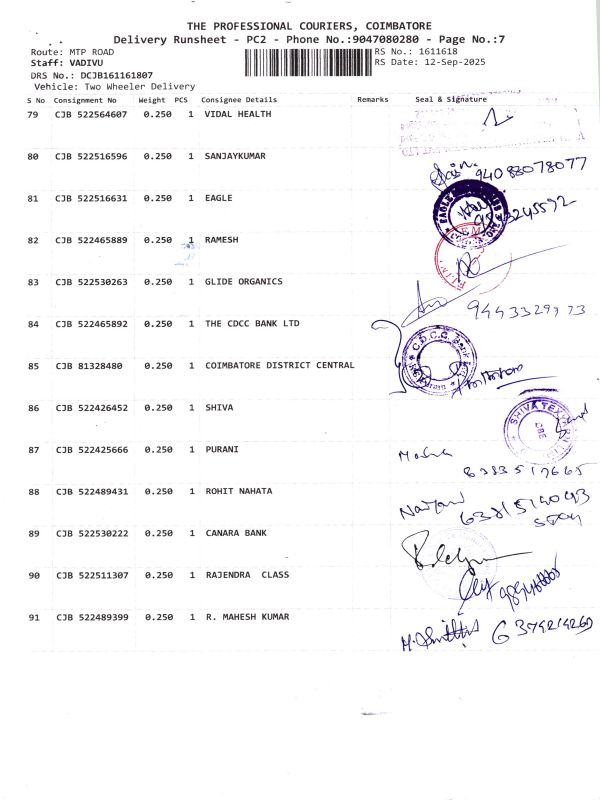 THE PROFESSIONAL COURIERS, COIMBATORE
Delivery Runsheet - PC2 - Phone No.:9047080280 - Page No.:7
Route: MTP ROAD RS No.: 1611618
Staff: VADIVU RS Date: 12-Sep-2025
DRS No.: DCJB161161807
Vehicle: Two Wheeler Delivery
S No Consignment No Weight PCS Consignee Details Remarks Seal & Signature
79 CJB 522564607 0.250 1 VIDAL HEALTH
80 CJB 522516596 0.250 1 SANJAYKUMAR
94083078077
81 CJB 522516631 0.250 1 EAGLE
82 CJB 522465889 0.250 1 RAMESH
83 CJB 522530263 0.250 1 GLIDE ORGANICS
9443329973
84 CJB 522465892 0.250 1 THE CDCC BANK LTD
85 CJB 81328480 0.250 1 COIMBATORE DISTRICT CENTRAL
86 CJB 522426452 0.250 1 SHIVA
87 CJB 522425666 0.250 1 PURANI
8383517665
88 CJB 522489431 0.250 1 ROHIT NAHATA
89 CJB 522530222 0.250 1 CANARA BANK
90 CJB 522511307 0.250 1 RAJENDRA CLASS
91 CJB 522489399 0.250 1 R. MAHESH KUMAR
6374214260